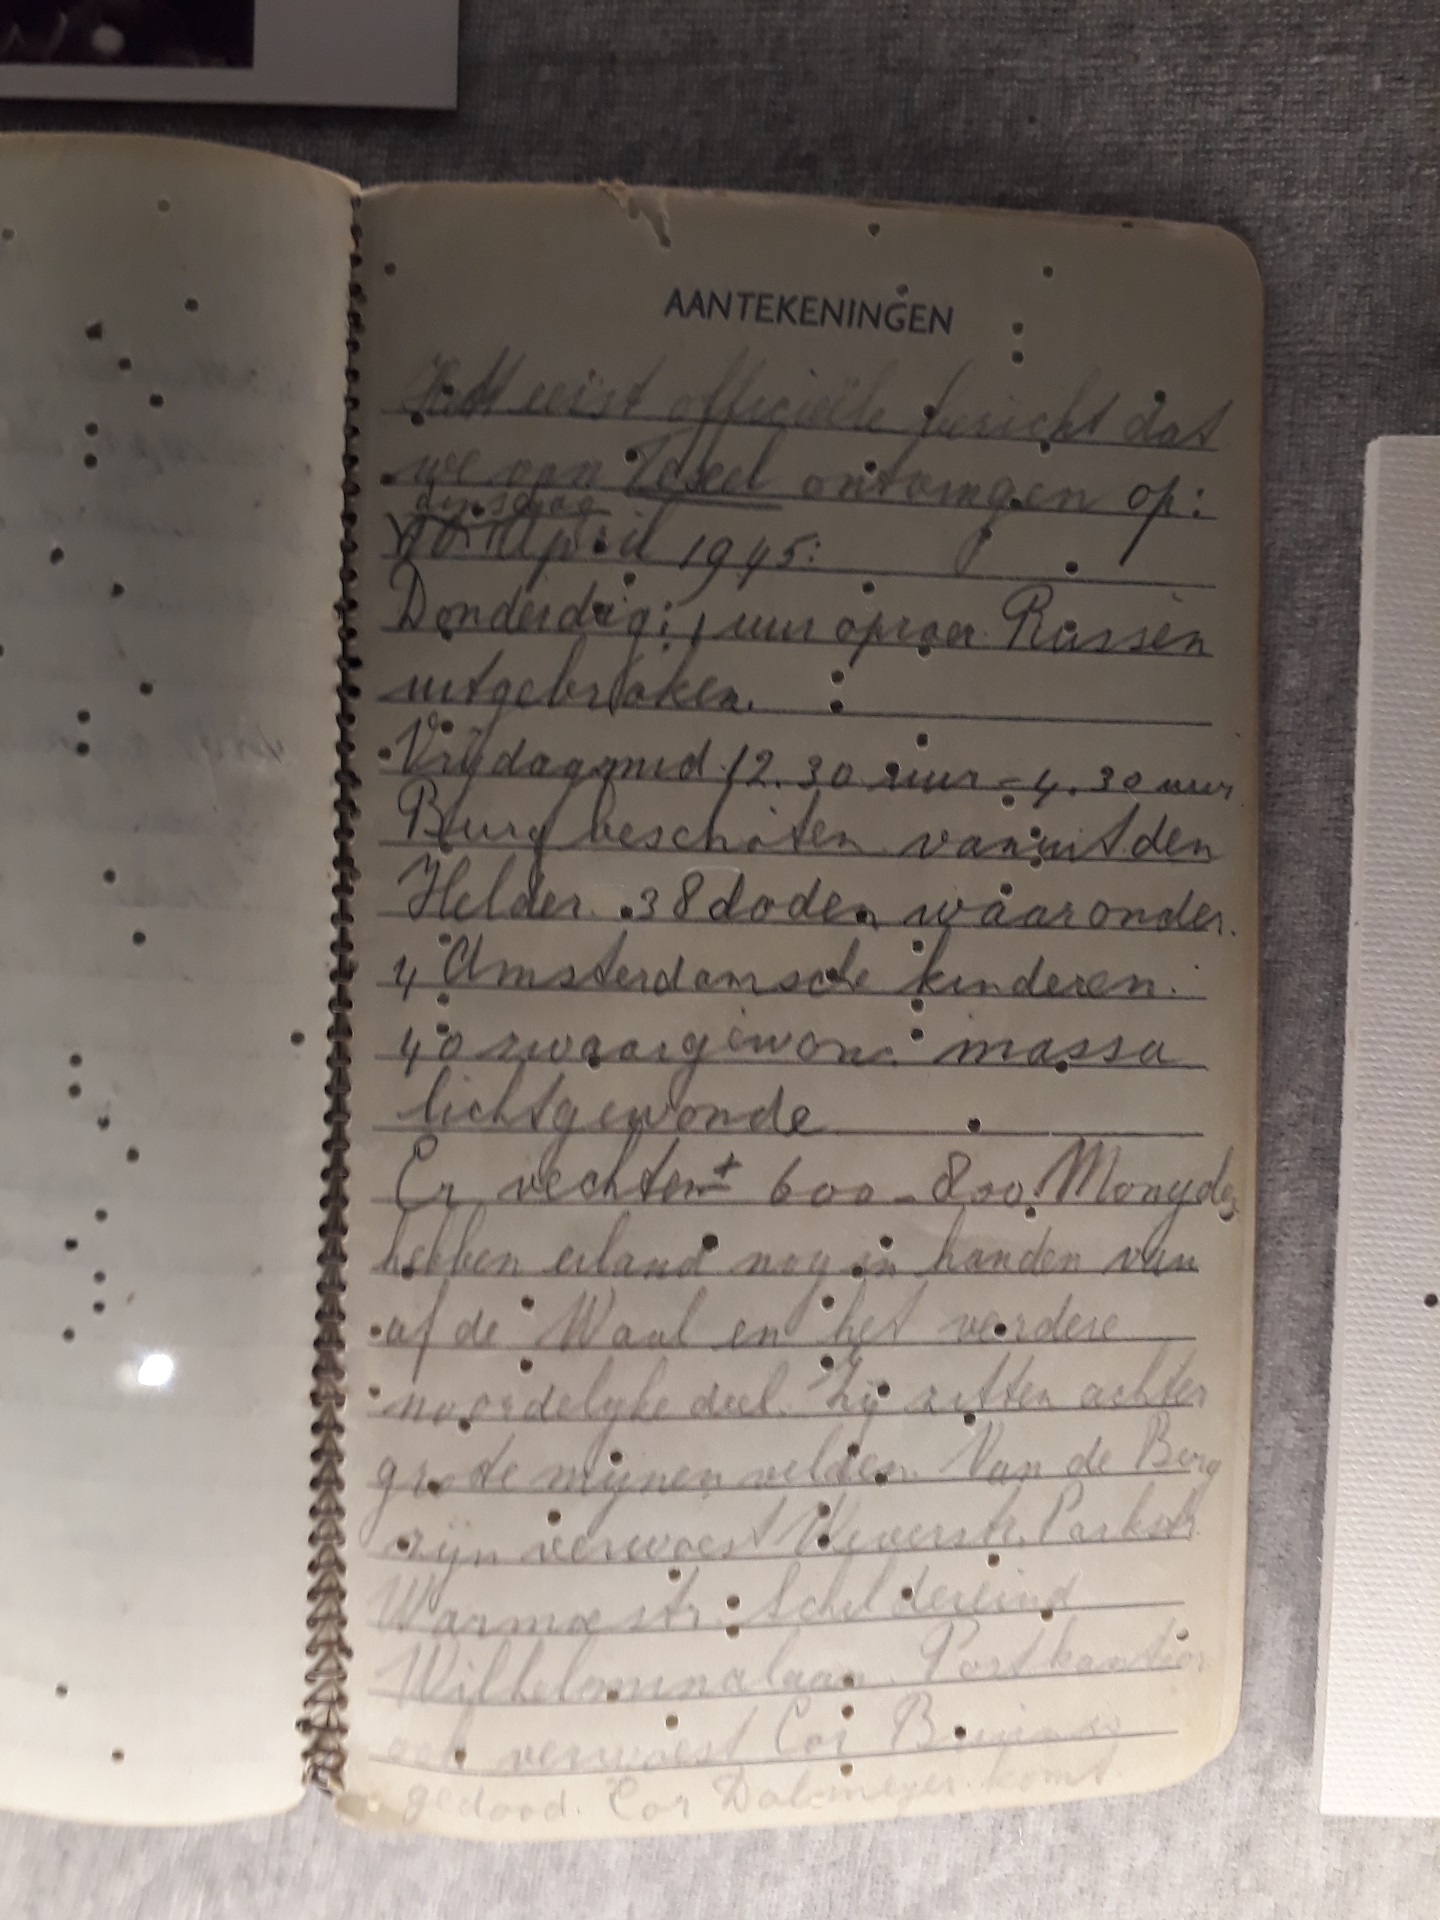 AANTEKENINGEN
Het eerst officiële bericht dat
we van Texel ontvangen op:
dinsdag
April 1945:
Donderdag: 1 uur oproer Russen
uitgebroken.
Vrijdagmid. 12.30 uur - 4.30 uur
Burg beschoten vanuit den
Helder. 38 doden waaronder
4 Amsterdamsche kinderen.
40 zwaargewon. massa
lichtgewonde
Er vechten ± 600-800
hebben eiland nog in handen van
af de Waal en het verdere
noordelyke deel. Zij zitten achter
grote mynen velden. Van de Burg
zyn verwoest Weverstr. Parkstr.
Warmoestr. Schildereind
Wilhelminalaan. Postkantoor
ook verwoest Cor
gedood. Cor komt